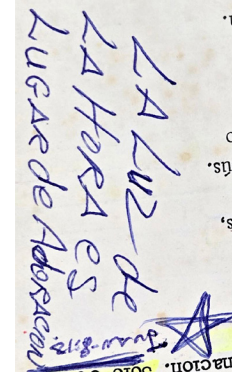 LA LUZ de
LA HORA es
LUGAR de Adoracion
Juan-8:12
nacion.